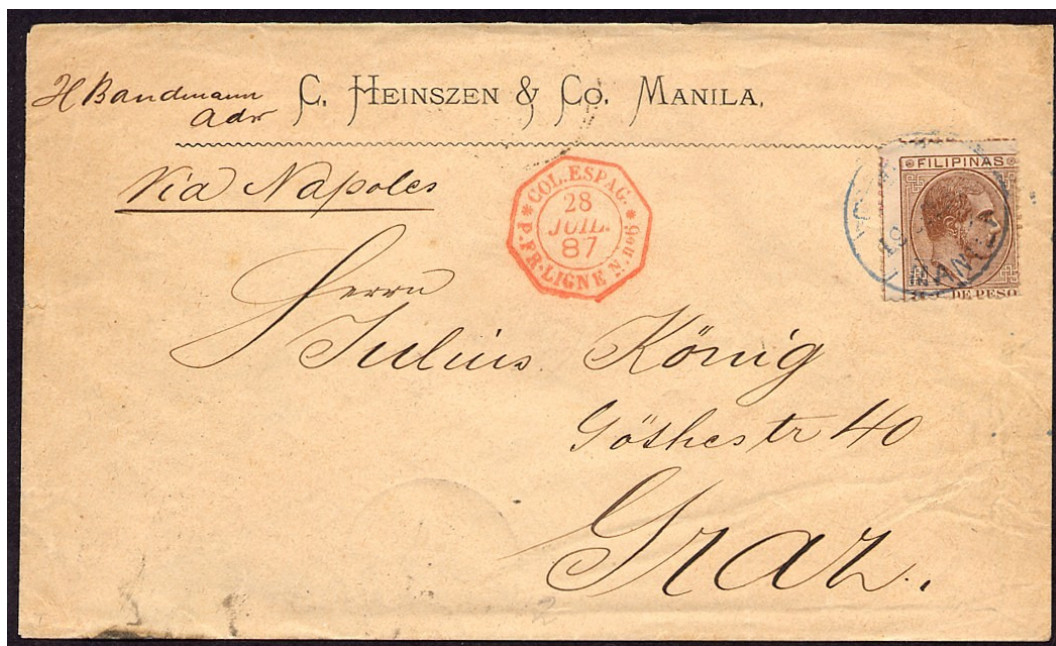 H Bandmann
adr
C. HEINSZEN & CO. MANILA.
Via Napoles
COL. ESPAG.
28
JUIL.
87
P. FR. LIGNE N. No 6
FILIPINAS
MANILA
DE PESO
Herrn
Julius König
Göthestr 40
Graz.